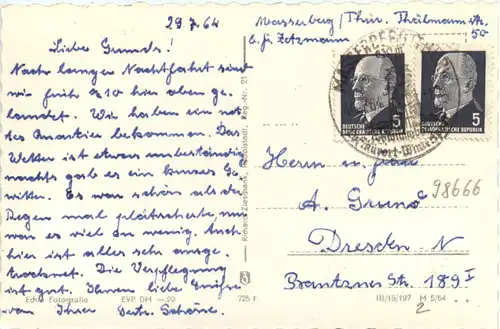 29.7.64
Liebe Grunds!
Nach langer Nachtfahrt sind
wir früh 9 10 hier oben ge-
landet. Wir haben ein net-
tes Quartier bekommen. Das
Wetter ist etwas unbeständig
nachts gab es ein kurzes Ge-
witter. Es war schön als der
Regen mal plätscherte, nur
war es viel zu wenig. Auch
hier ist alles sehr ausge-
trocknet. Die Verpflegung
ist gut. Ihnen liebe Grüße
von Ihrer
Masserberg/Thür. Thälmannstr.
50
b. Zetzmann
DEUTSCHE
DEMOKRATISCHE REPUBLIK
5
DEUTSCHE
DEMOKRATISCHE REPUBLIK
5
MASSERBERG
Herrn u. Frau
98666
A. Grund
Dresden N
Bautzner Str. 189 I
2
Echt Fotografie EVP DM —.20 725 F
III/18/197 M 5/64